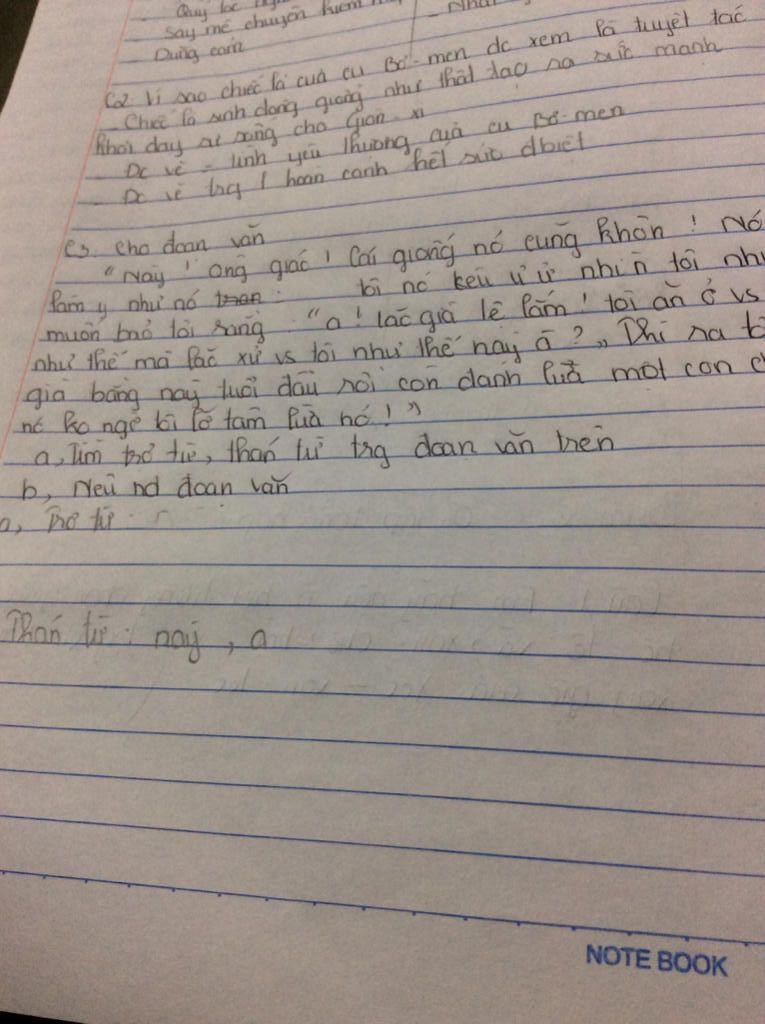 Say mê chuyện kiếm h
- Nhâ
- Dũng cảm
C2. Vì sao chiếc lá của cụ Bơ-men dc xem là tuyệt tác
- Chiếc lá sinh động giống như thật tạo ra sức mạnh
khơi dậy sự sống cho Giôn xi
- Dc vẽ = tình yêu thương của cụ Bơ-men
- Dc vẽ trg 1 hoàn cảnh hết sức dbiệt
C3. Cho đoạn văn
"Này ! Ông giáo ! Cái giống nó cũng khôn ! Nó
làm y như nó : tôi nó kêu ư ử nhìn tôi như
muốn bảo tôi rằng : "a ! lão già tệ lắm ! tôi ăn ở vs
như thế mà lão xử vs tôi như thế này à ? „ Thì ra tô
già bằng này tuổi đầu rồi còn đánh lừa một con c
nó ko ngờ tôi lỡ tâm lừa nó ! "
a, Tìm trợ từ, thán từ trg đoạn văn trên
b, Nêu nd đoạn văn
a, Trợ từ :
Thán từ : này , a
NOTE BOOK